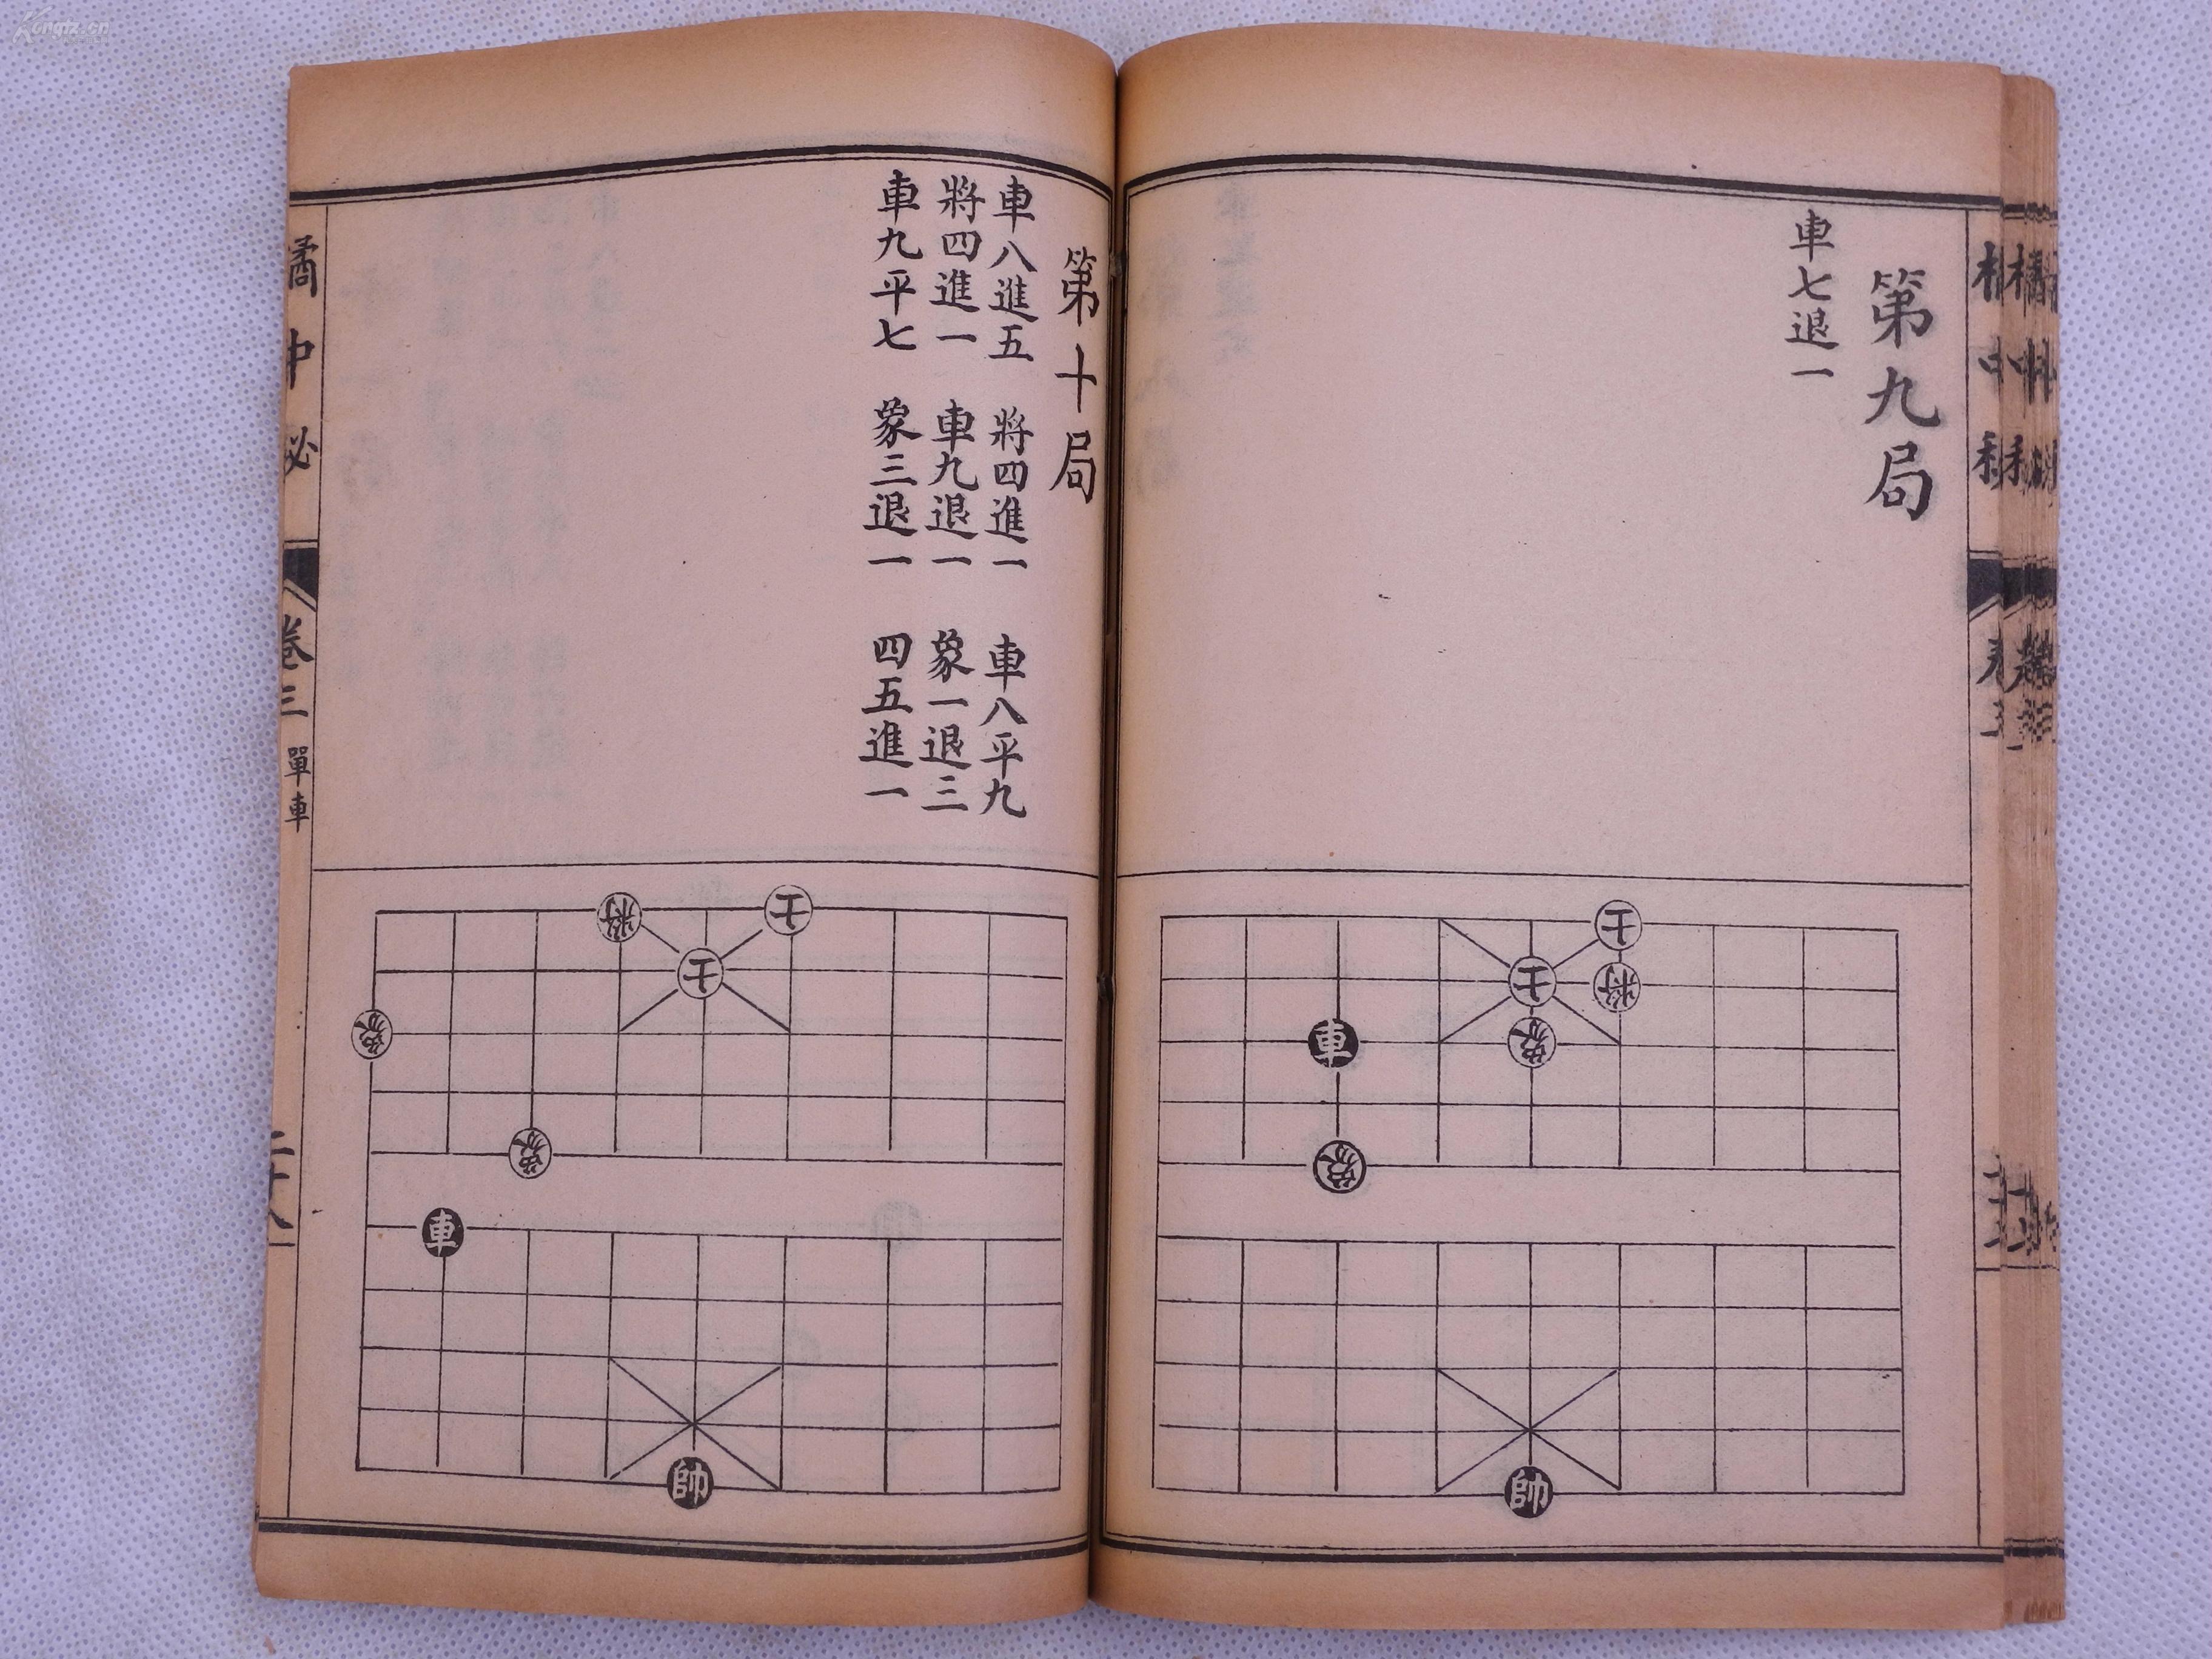 Kongfz.cn
第九局
車七退一
士
士
將
車
象
象
帥
第十局
車八進五 將四進一 車八平九
將四進一 車九退一 象一退三
車九平七 象三退一 四五進一
將
士
士
象
象
車
帥
橘中祕
卷三 單車